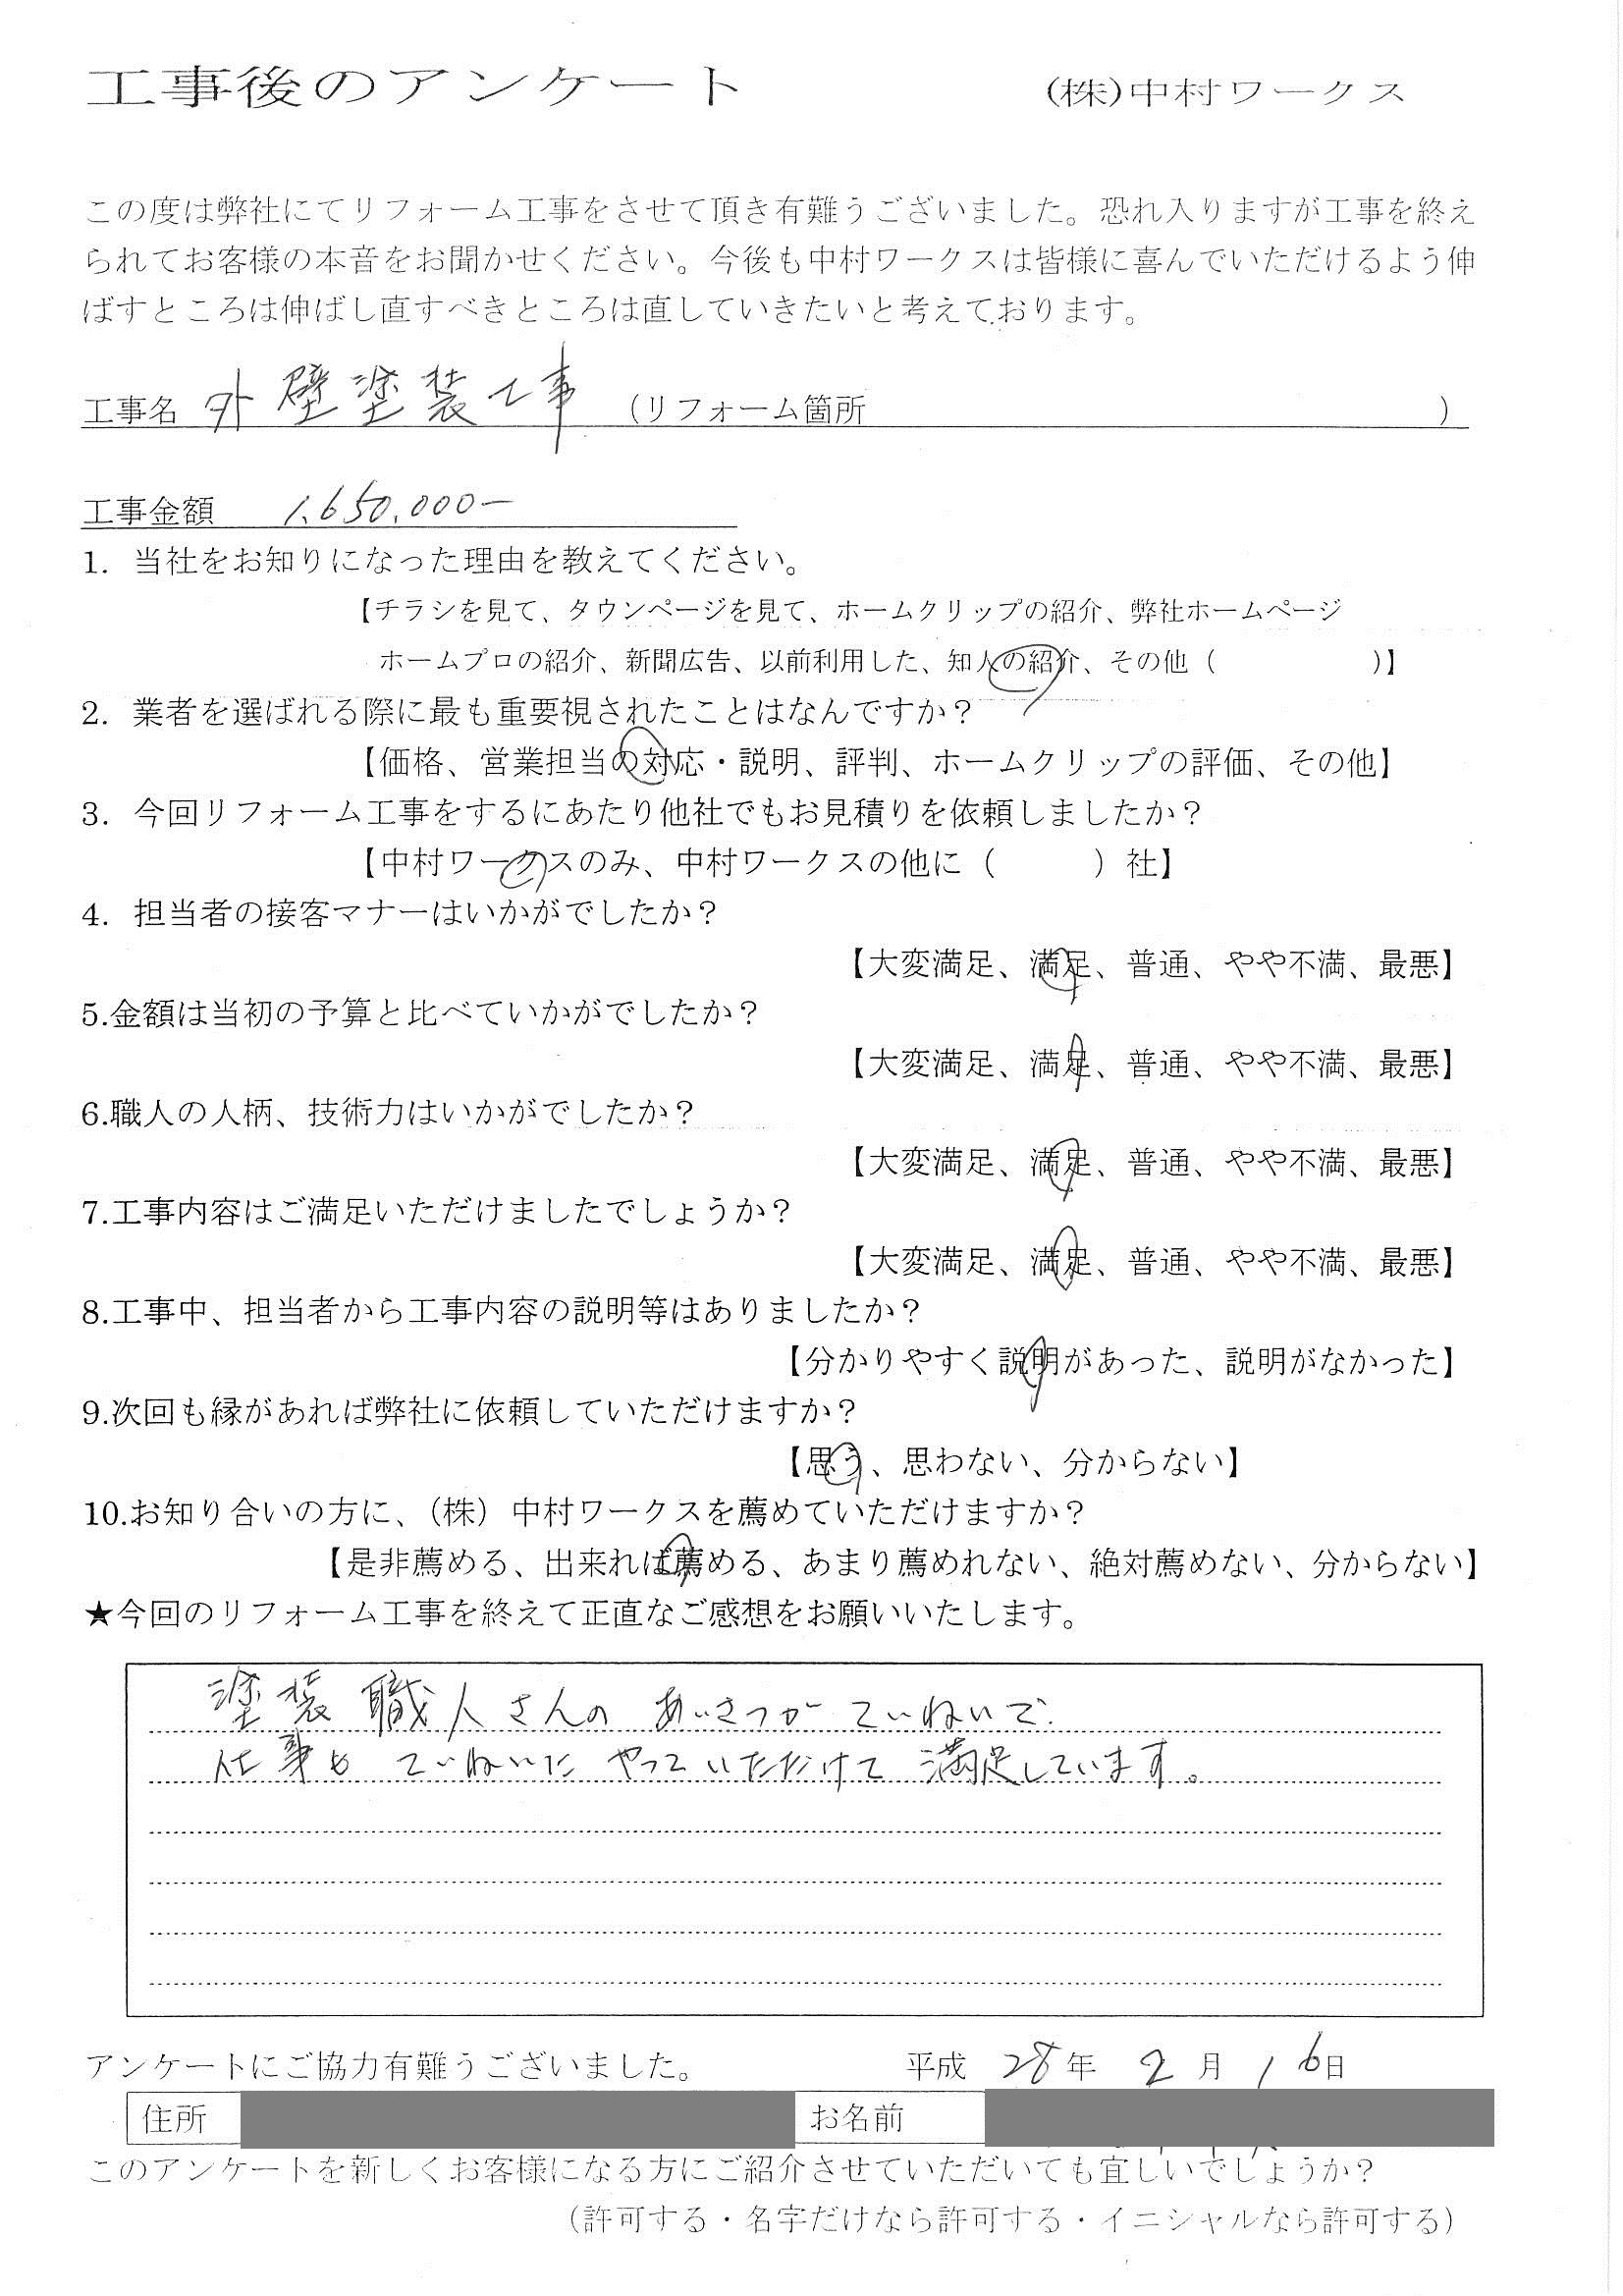 工事後のアンケート (株)中村ワークス
この度は弊社にてリフォーム工事をさせて頂き有難うございました。恐れ入りますが工事を終え
られてお客様の本音をお聞かせください。今後も中村ワークスは皆様に喜んでいただけるよう伸
ばすところは伸ばし直すべきところは直していきたいと考えております。
工事名 外壁塗装工事 (リフォーム箇所 )
工事金額 1,650,000−
1. 当社をお知りになった理由を教えてください。
【チラシを見て、タウンページを見て、ホームクリップの紹介、弊社ホームページ
ホームプロの紹介、新聞広告、以前利用した、知人の紹介、その他( )】
2. 業者を選ばれる際に最も重要視されたことはなんですか?
【価格、営業担当の対応・説明、評判、ホームクリップの評価、その他】
3. 今回リフォーム工事をするにあたり他社でもお見積りを依頼しましたか?
【中村ワークスのみ、中村ワークスの他に( )社】
4. 担当者の接客マナーはいかがでしたか?
【大変満足、満足、普通、やや不満、最悪】
5.金額は当初の予算と比べていかがでしたか?
【大変満足、満足、普通、やや不満、最悪】
6.職人の人柄、技術力はいかがでしたか?
【大変満足、満足、普通、やや不満、最悪】
7.工事内容はご満足いただけましたでしょうか?
【大変満足、満足、普通、やや不満、最悪】
8.工事中、担当者から工事内容の説明等はありましたか?
【分かりやすく説明があった、説明がなかった】
9.次回も縁があれば弊社に依頼していただけますか?
【思う、思わない、分からない】
10.お知り合いの方に、(株)中村ワークスを薦めていただけますか?
【是非薦める、出来れば薦める、あまり薦めれない、絶対薦めない、分からない】
★今回のリフォーム工事を終えて正直なご感想をお願いいたします。
塗装職人さんの あいさつが ていねいで
仕事も ていねいに やっていただけて 満足しています。
アンケートにご協力有難うございました。 平成 28年 2月 16日
住所 お名前
このアンケートを新しくお客様になる方にご紹介させていただいても宜しいでしょうか?
(許可する・名字だけなら許可する・イニシャルなら許可する)